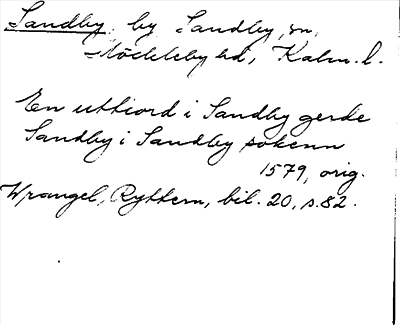 Sandby, by Sandby, sn,
Möckleby hd, Kalm. l.
En utbiord i Sandby gerde
Sandby i Sandby sokenn
1579, orig.
Wrangel, Ryttern, bil. 20, s. 82.